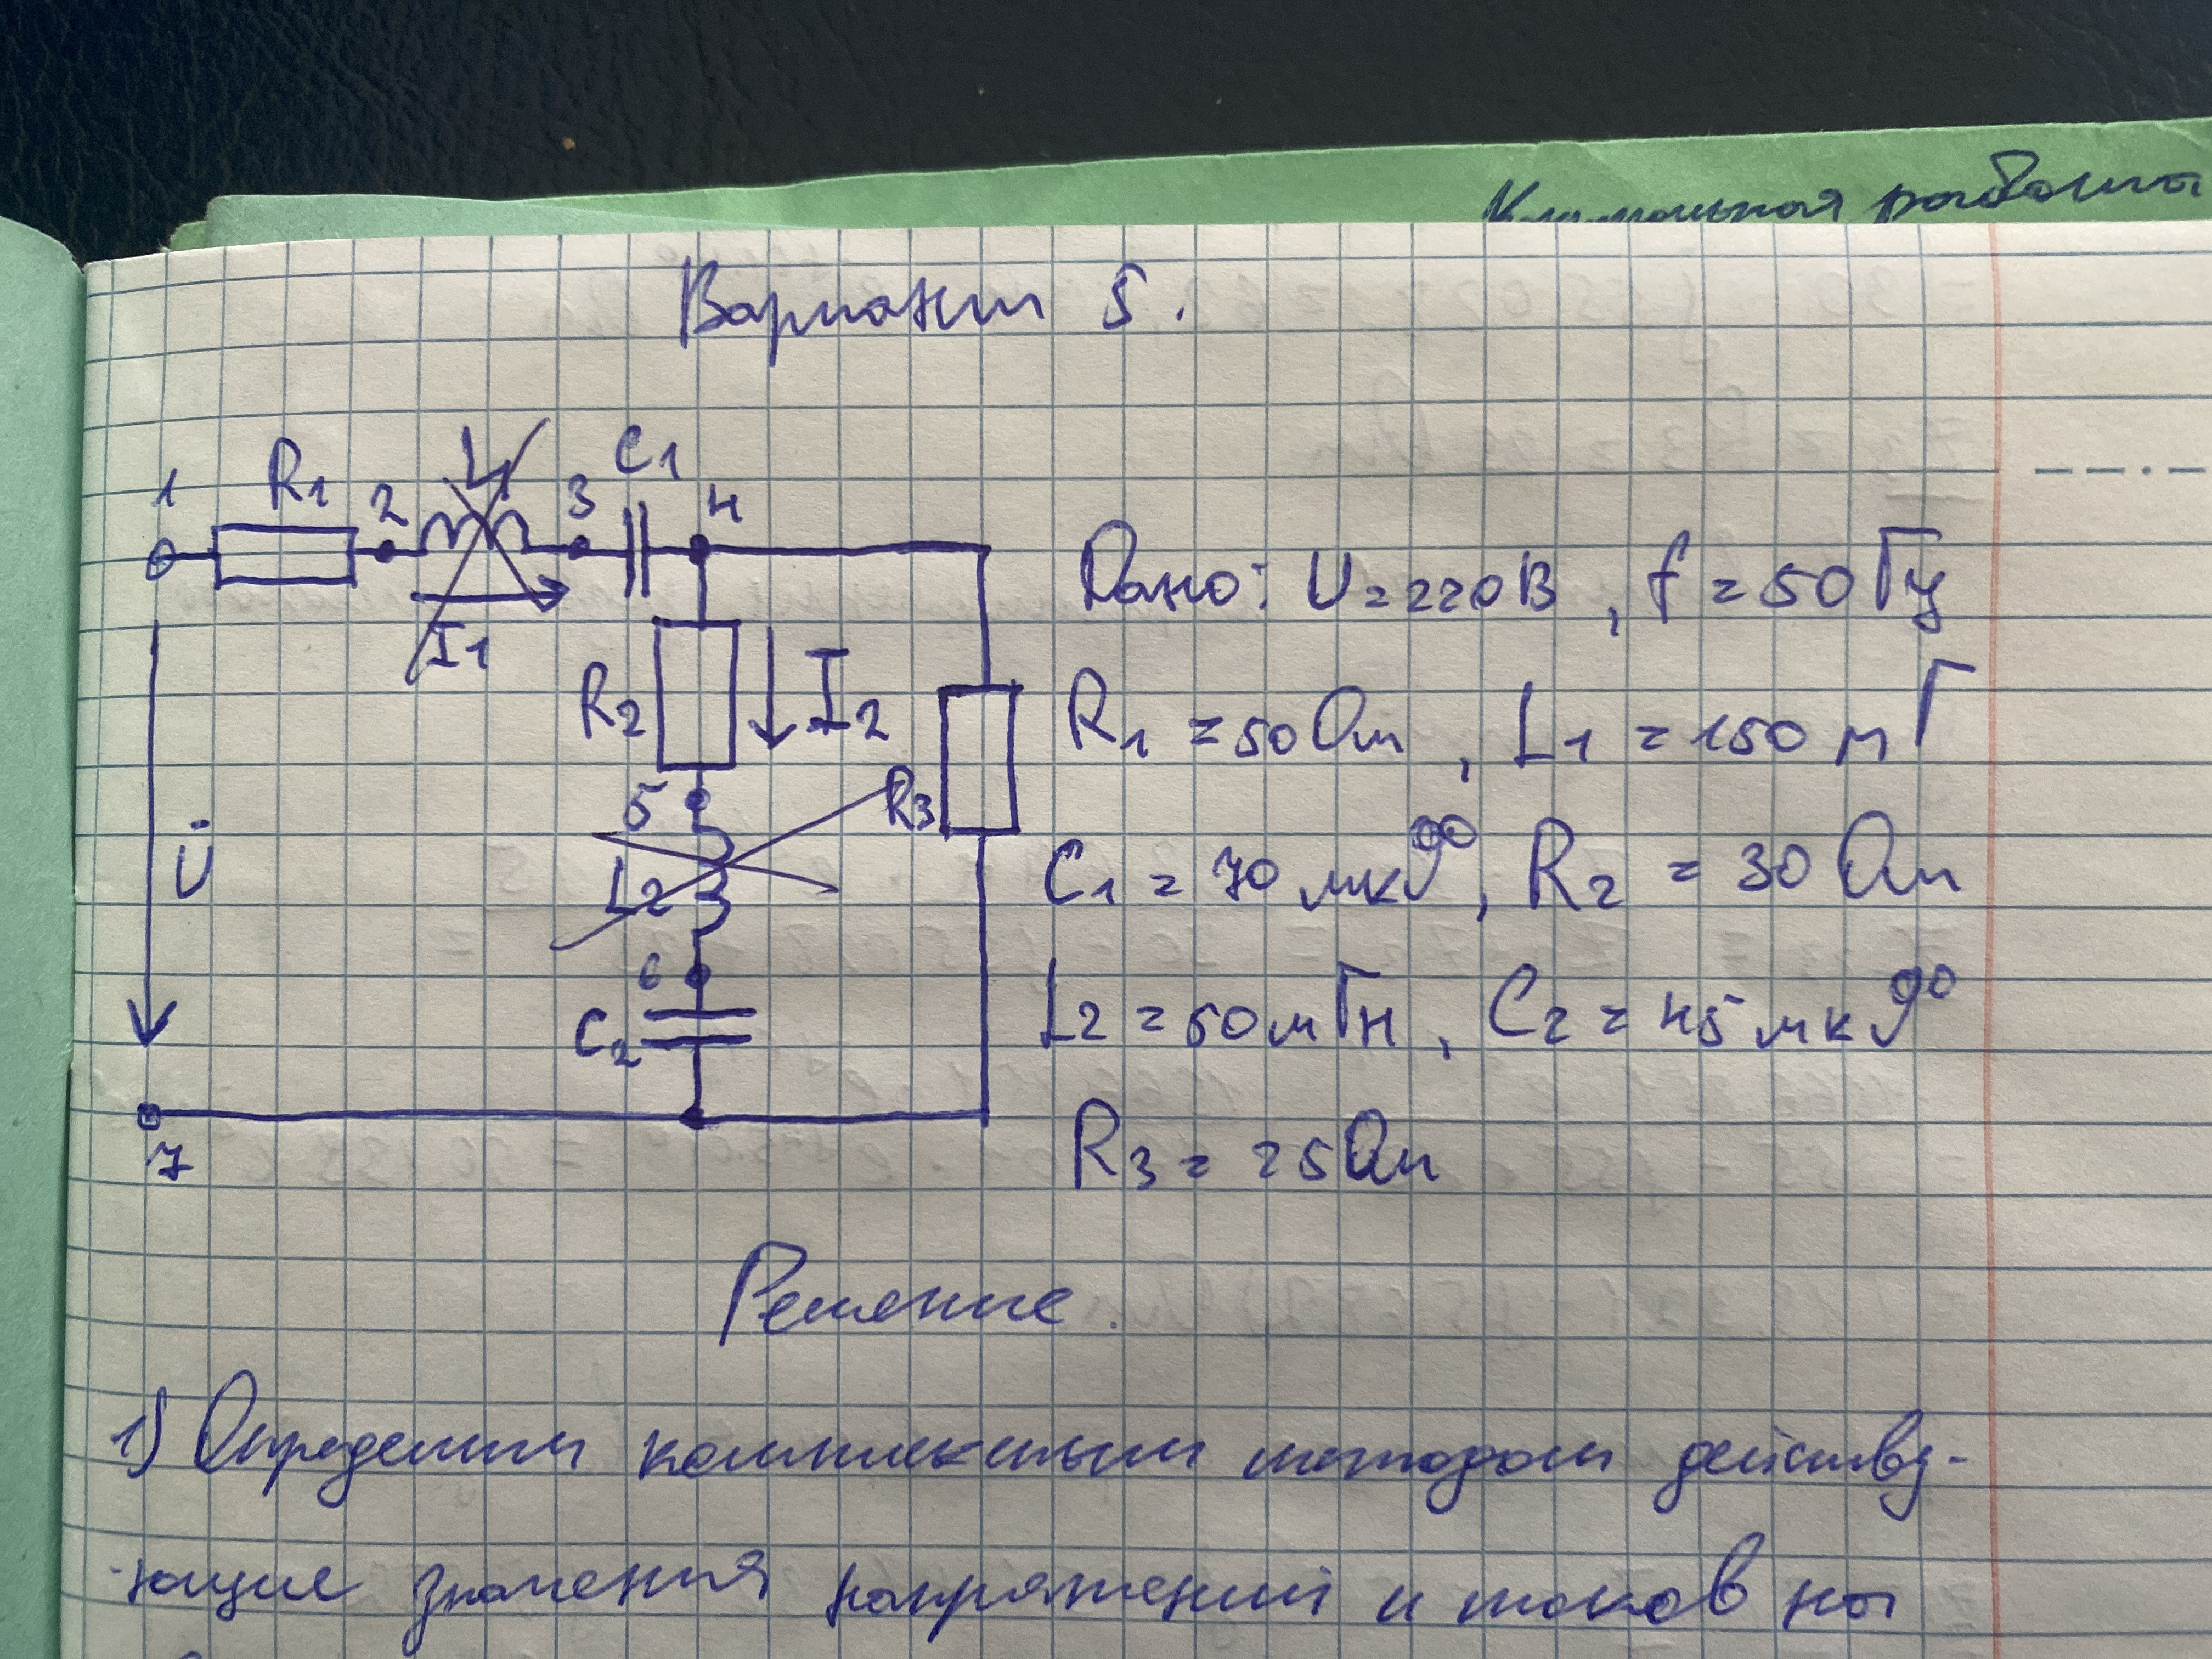 Контрольная работа
Вариант 5.
1 R1 2 L1 3 C1 4
I1
R2 I2
5 R3
L2
U̇
6
C2
7
Дано: U=220В, f=50Гц
R1=50Ом, L1=150мГ
C1=70мкФ, R2=30Ом
L2=50мГн, C2=45мкФ
R3=25Ом
Решение.
1) Определим комплексным методом действу-
ющие значения напряжений и токов на